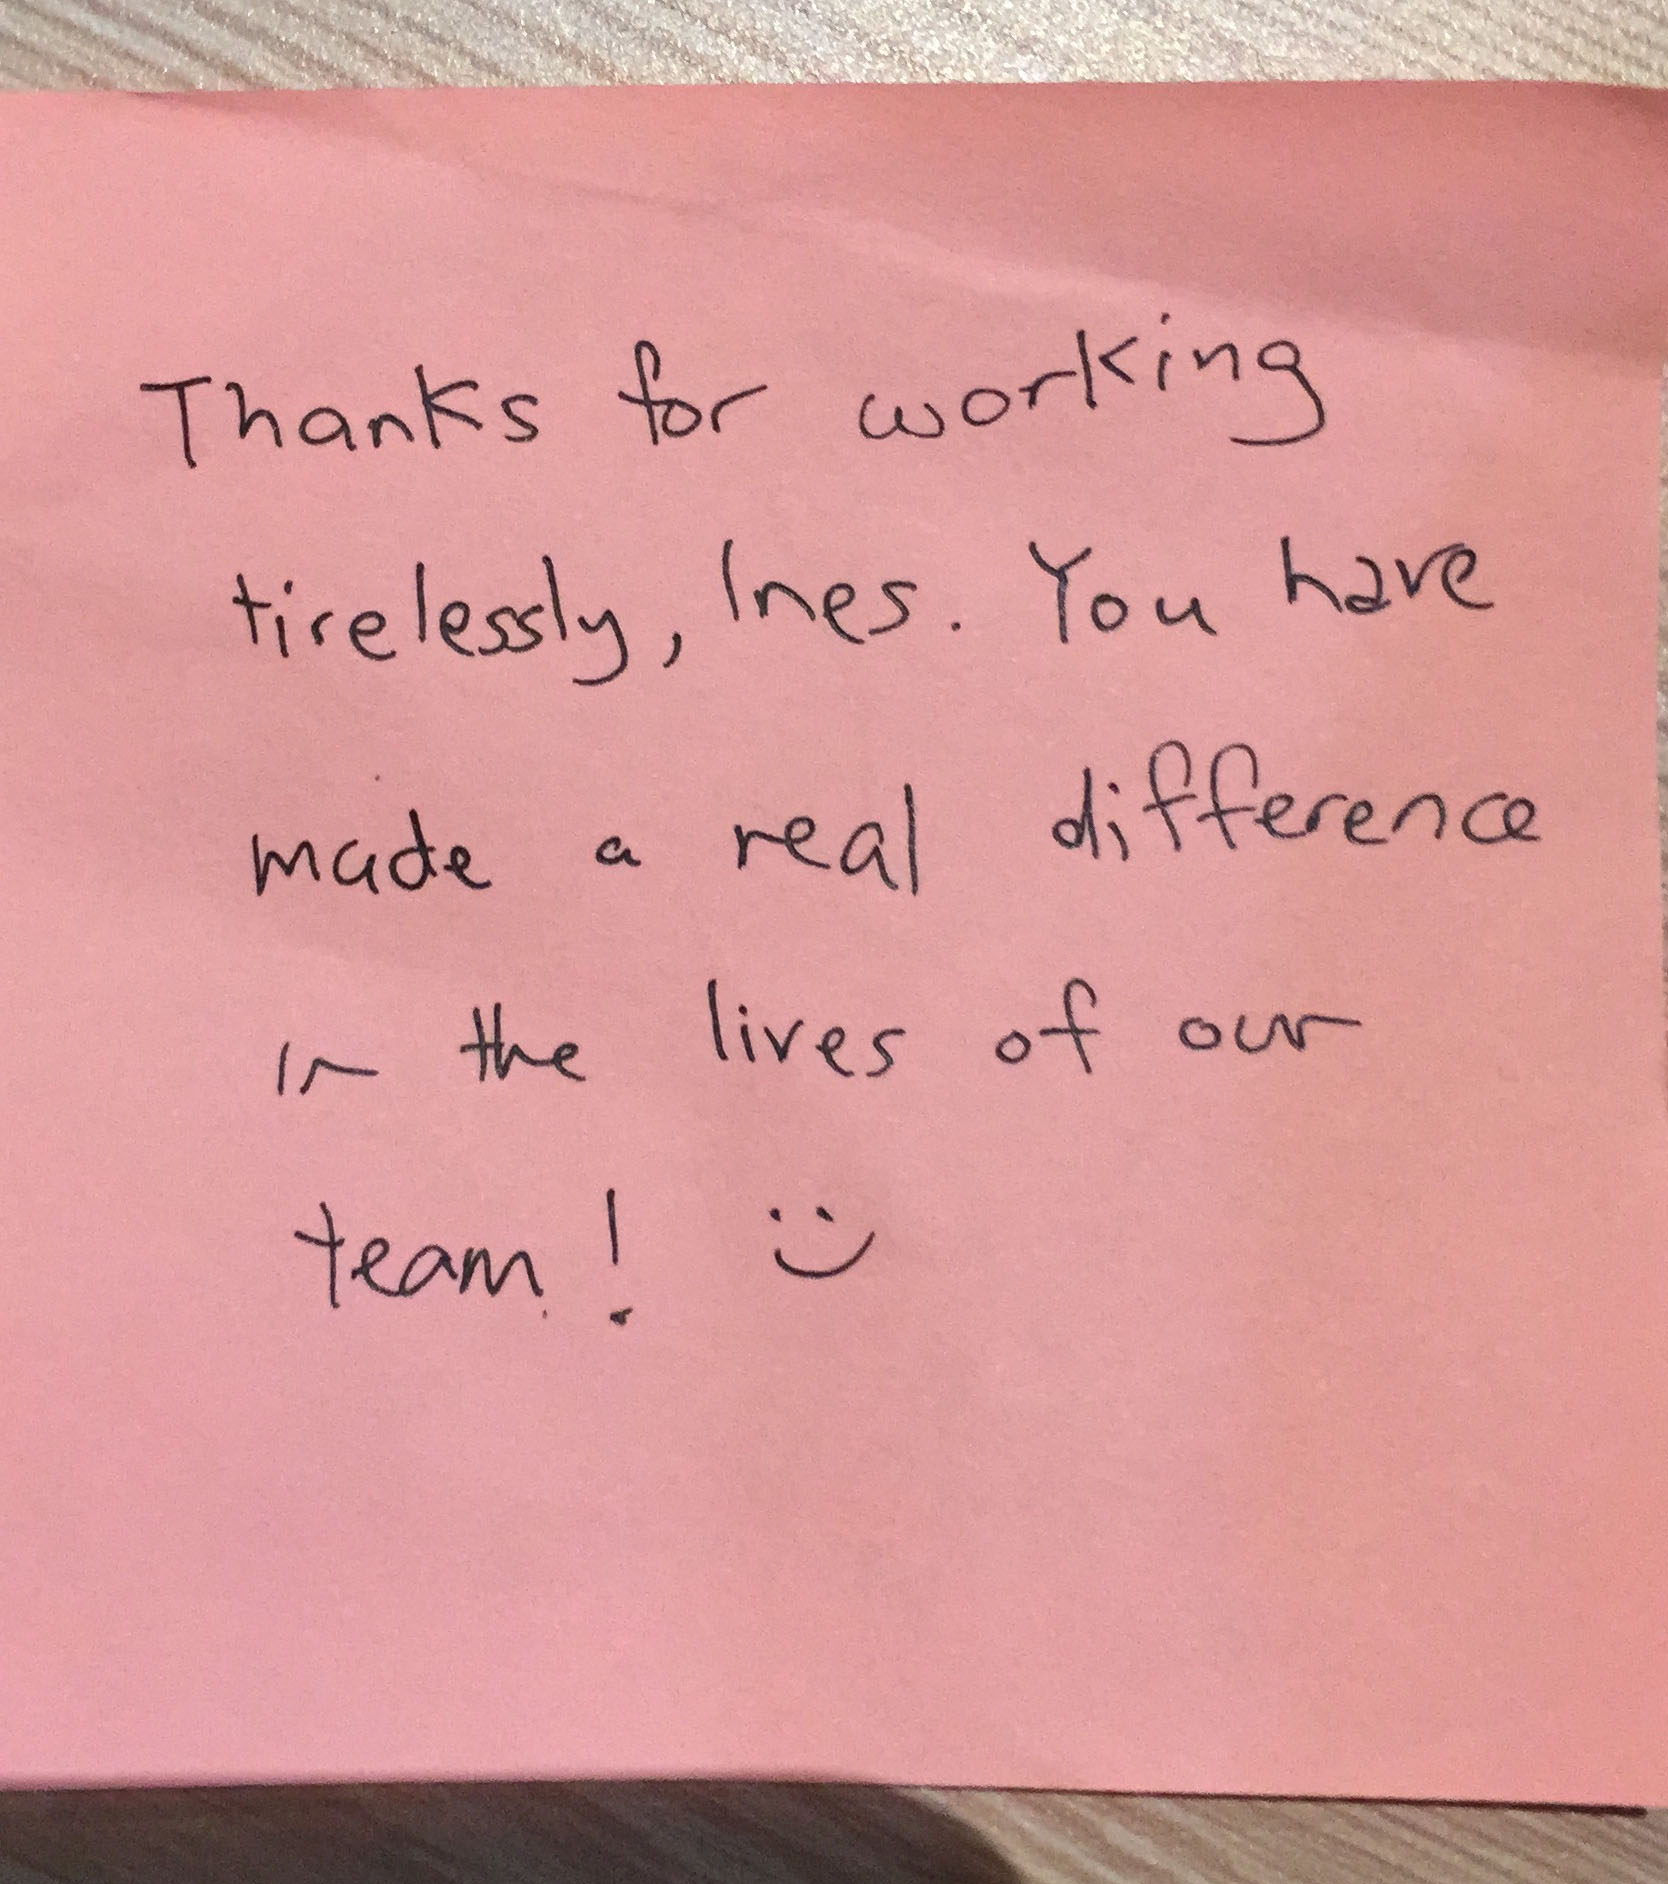 Thanks for working
tirelessly, Ines. You have
made a real difference
in the lives of our
team! :)